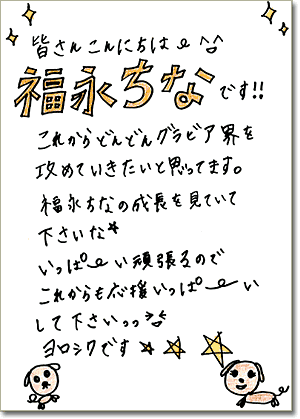 皆さんこんにちは〜^^
福永ちなです!!
これからどんどんグラビア界を
攻めていきたいと思ってます。
福永ちなの成長を見ていて
下さいな☆
いっぱ〜い頑張るので
これからも応援いっぱ〜い
して下さいっっ
ヨロシクです☆☆☆